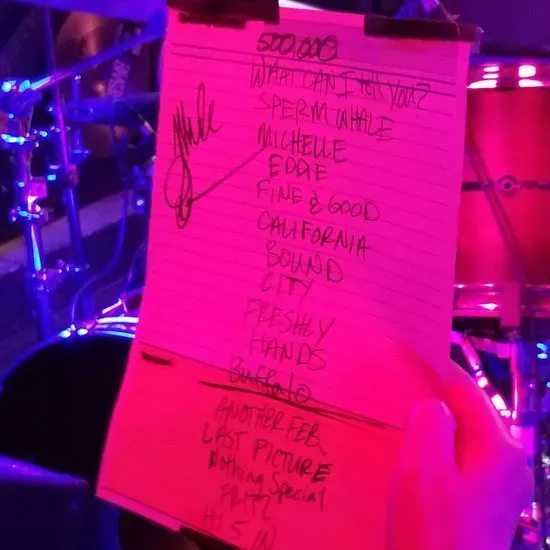 500,000
WHAT CAN I tell You?
SPERM WHALE
MICHELLE
EDDIE
FINE & GOOD
CALIFORNIA
BOUND
CITY
FRESHLY
HANDS
Buffalo
ANOTHER FEB
LAST PICTURE
Nothing Special
HI 5 IN